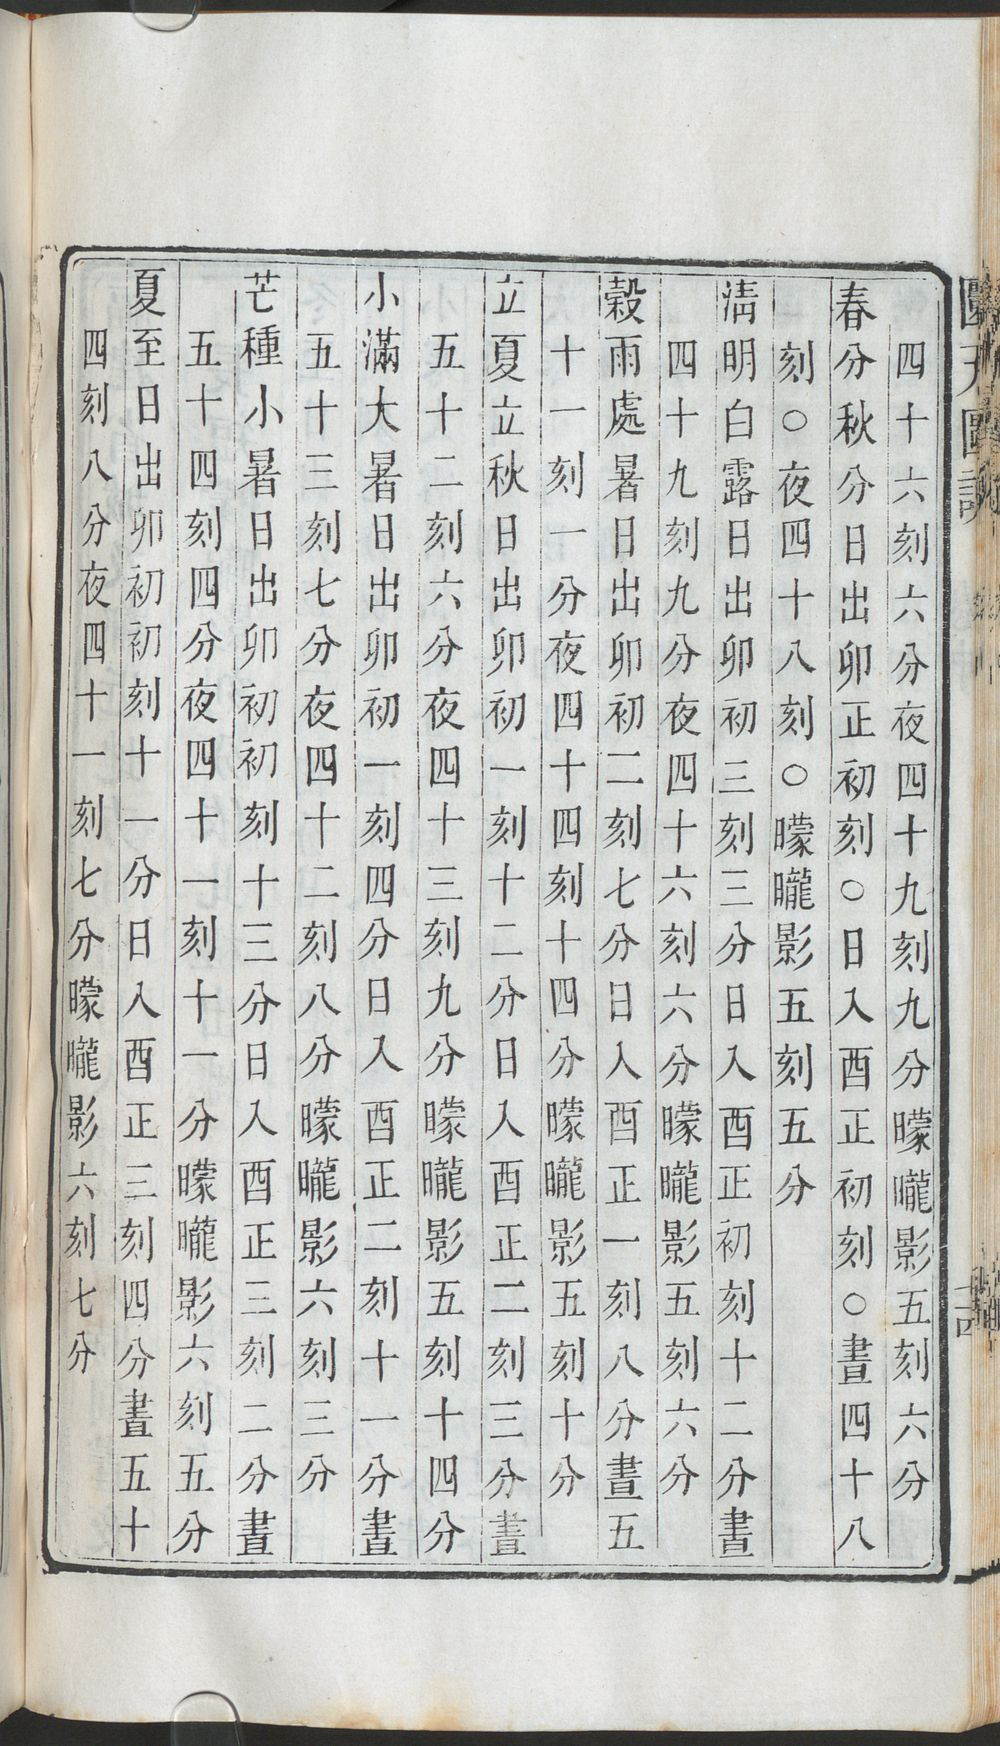 四十六刻六分夜四十九刻九分曚曨影五刻六分
春分秋分日出卯正初刻〇日入酉正初刻〇晝四十八
刻〇夜四十八刻〇曚曨影五刻五分
清明白露日出卯初三刻三分日入酉正初刻十二分晝
四十九刻九分夜四十六刻六分曚曨影五刻六分
穀雨處暑日出卯初二刻七分日入酉正一刻八分晝五
十一刻一分夜四十四刻十四分曚曨影五刻十分
立夏立秋日出卯初一刻十二分日入酉正二刻三分晝
五十二刻六分夜四十三刻九分曚曨影五刻十四分
小滿大暑日出卯初一刻四分日入酉正二刻十一分晝
五十三刻七分夜四十二刻八分曚曨影六刻三分
芒種小暑日出卯初初刻十三分日入酉正三刻二分晝
五十四刻四分夜四十一刻十一分曚曨影六刻五分
夏至日出卯初初刻十一分日入酉正三刻四分晝五十
四刻八分夜四十一刻七分曚曨影六刻七分